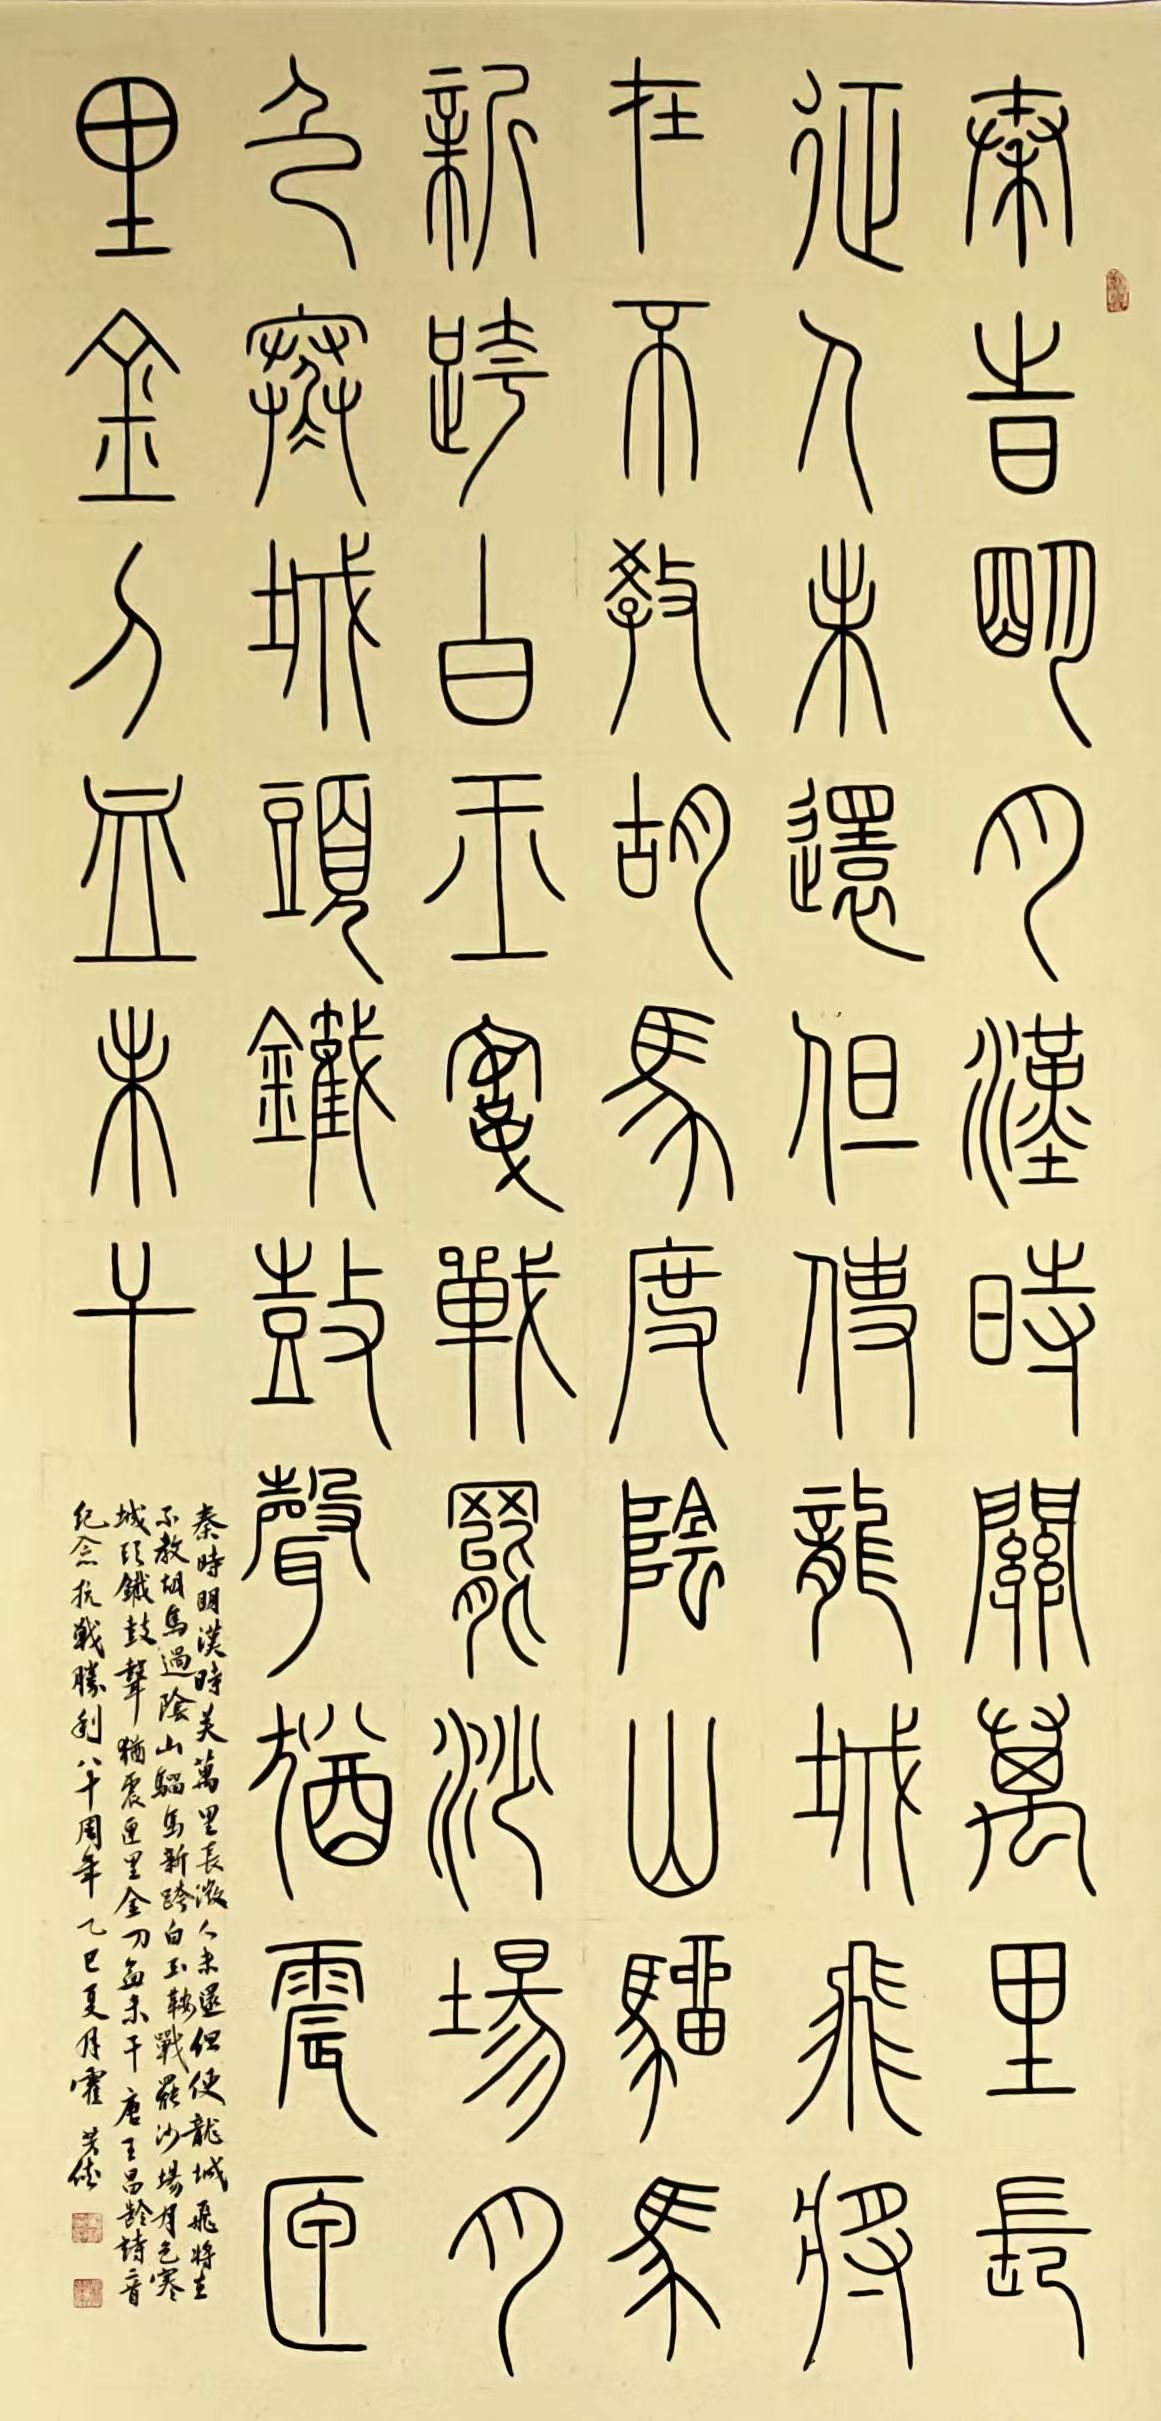 秦時明月漢時關萬里長
征人未還但使龍城飛將
在不教胡馬度陰山騮馬
新跨白玉鞍戰罷沙場月
色寒城頭鐵鼓聲猶震匣
里金刀血未干
秦時明漢時关萬里長徵人未還但使龍城飛將在
不教胡馬過陰山騮馬新跨白玉鞍戰罷沙場月色寒
城头鐵鼓聲猶震匣里金刀血未干唐王昌齡詩二首
纪念抗戰勝利八十周年乙巳夏月霍